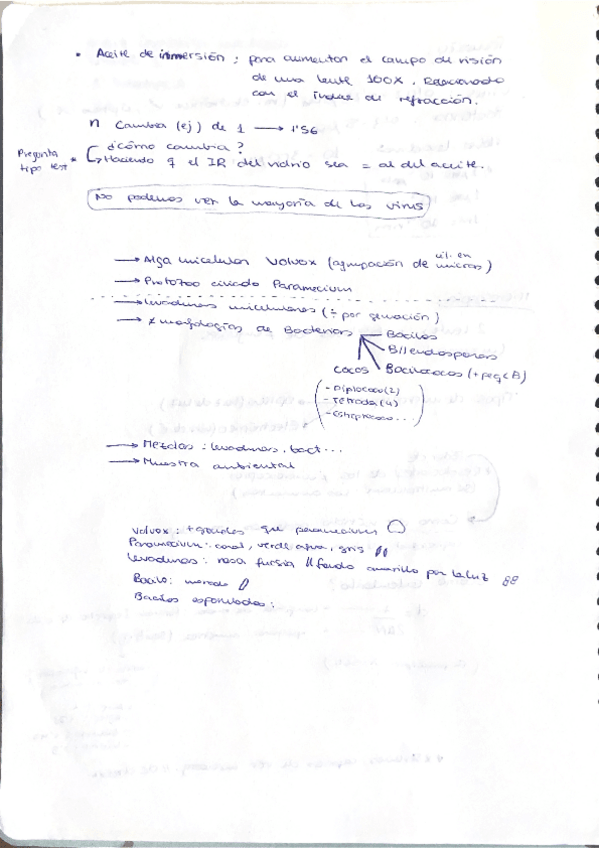 • Aceite de inmersión : para aumentar el campo de visión
de una lente 100x. Relacionado
con el índice de refracción.
n Cambia (ej) de 1 → 1'56
¿cómo cambia?
Pregunta
tipo test * ↳ Haciendo q el IR del vidrio sea = al del aceite.
No podemos ver la mayoría de los virus
→ Alga unicelular Volvox (agrupación de micros)
→ Protozoo ciliado Paramecium
→ Levaduras unicelulares (÷ por gemación)
→ ≠ morfologías de Bacterias
Bacilos
B/ endosporas
Cocos Bacilococos (+peq < B)
- Diplococo (2)
- Tétrada (4)
- Estreptococo...
→ Mezclas : levaduras, bact...
→ Muestra ambiental
Volvox : + grandes que paramecium
Paramecium : coral, verde agua, gris
Levaduras : rosa fucsia // fondo amarillo por la luz
Bacilo : morado
Bacilos esporulados :